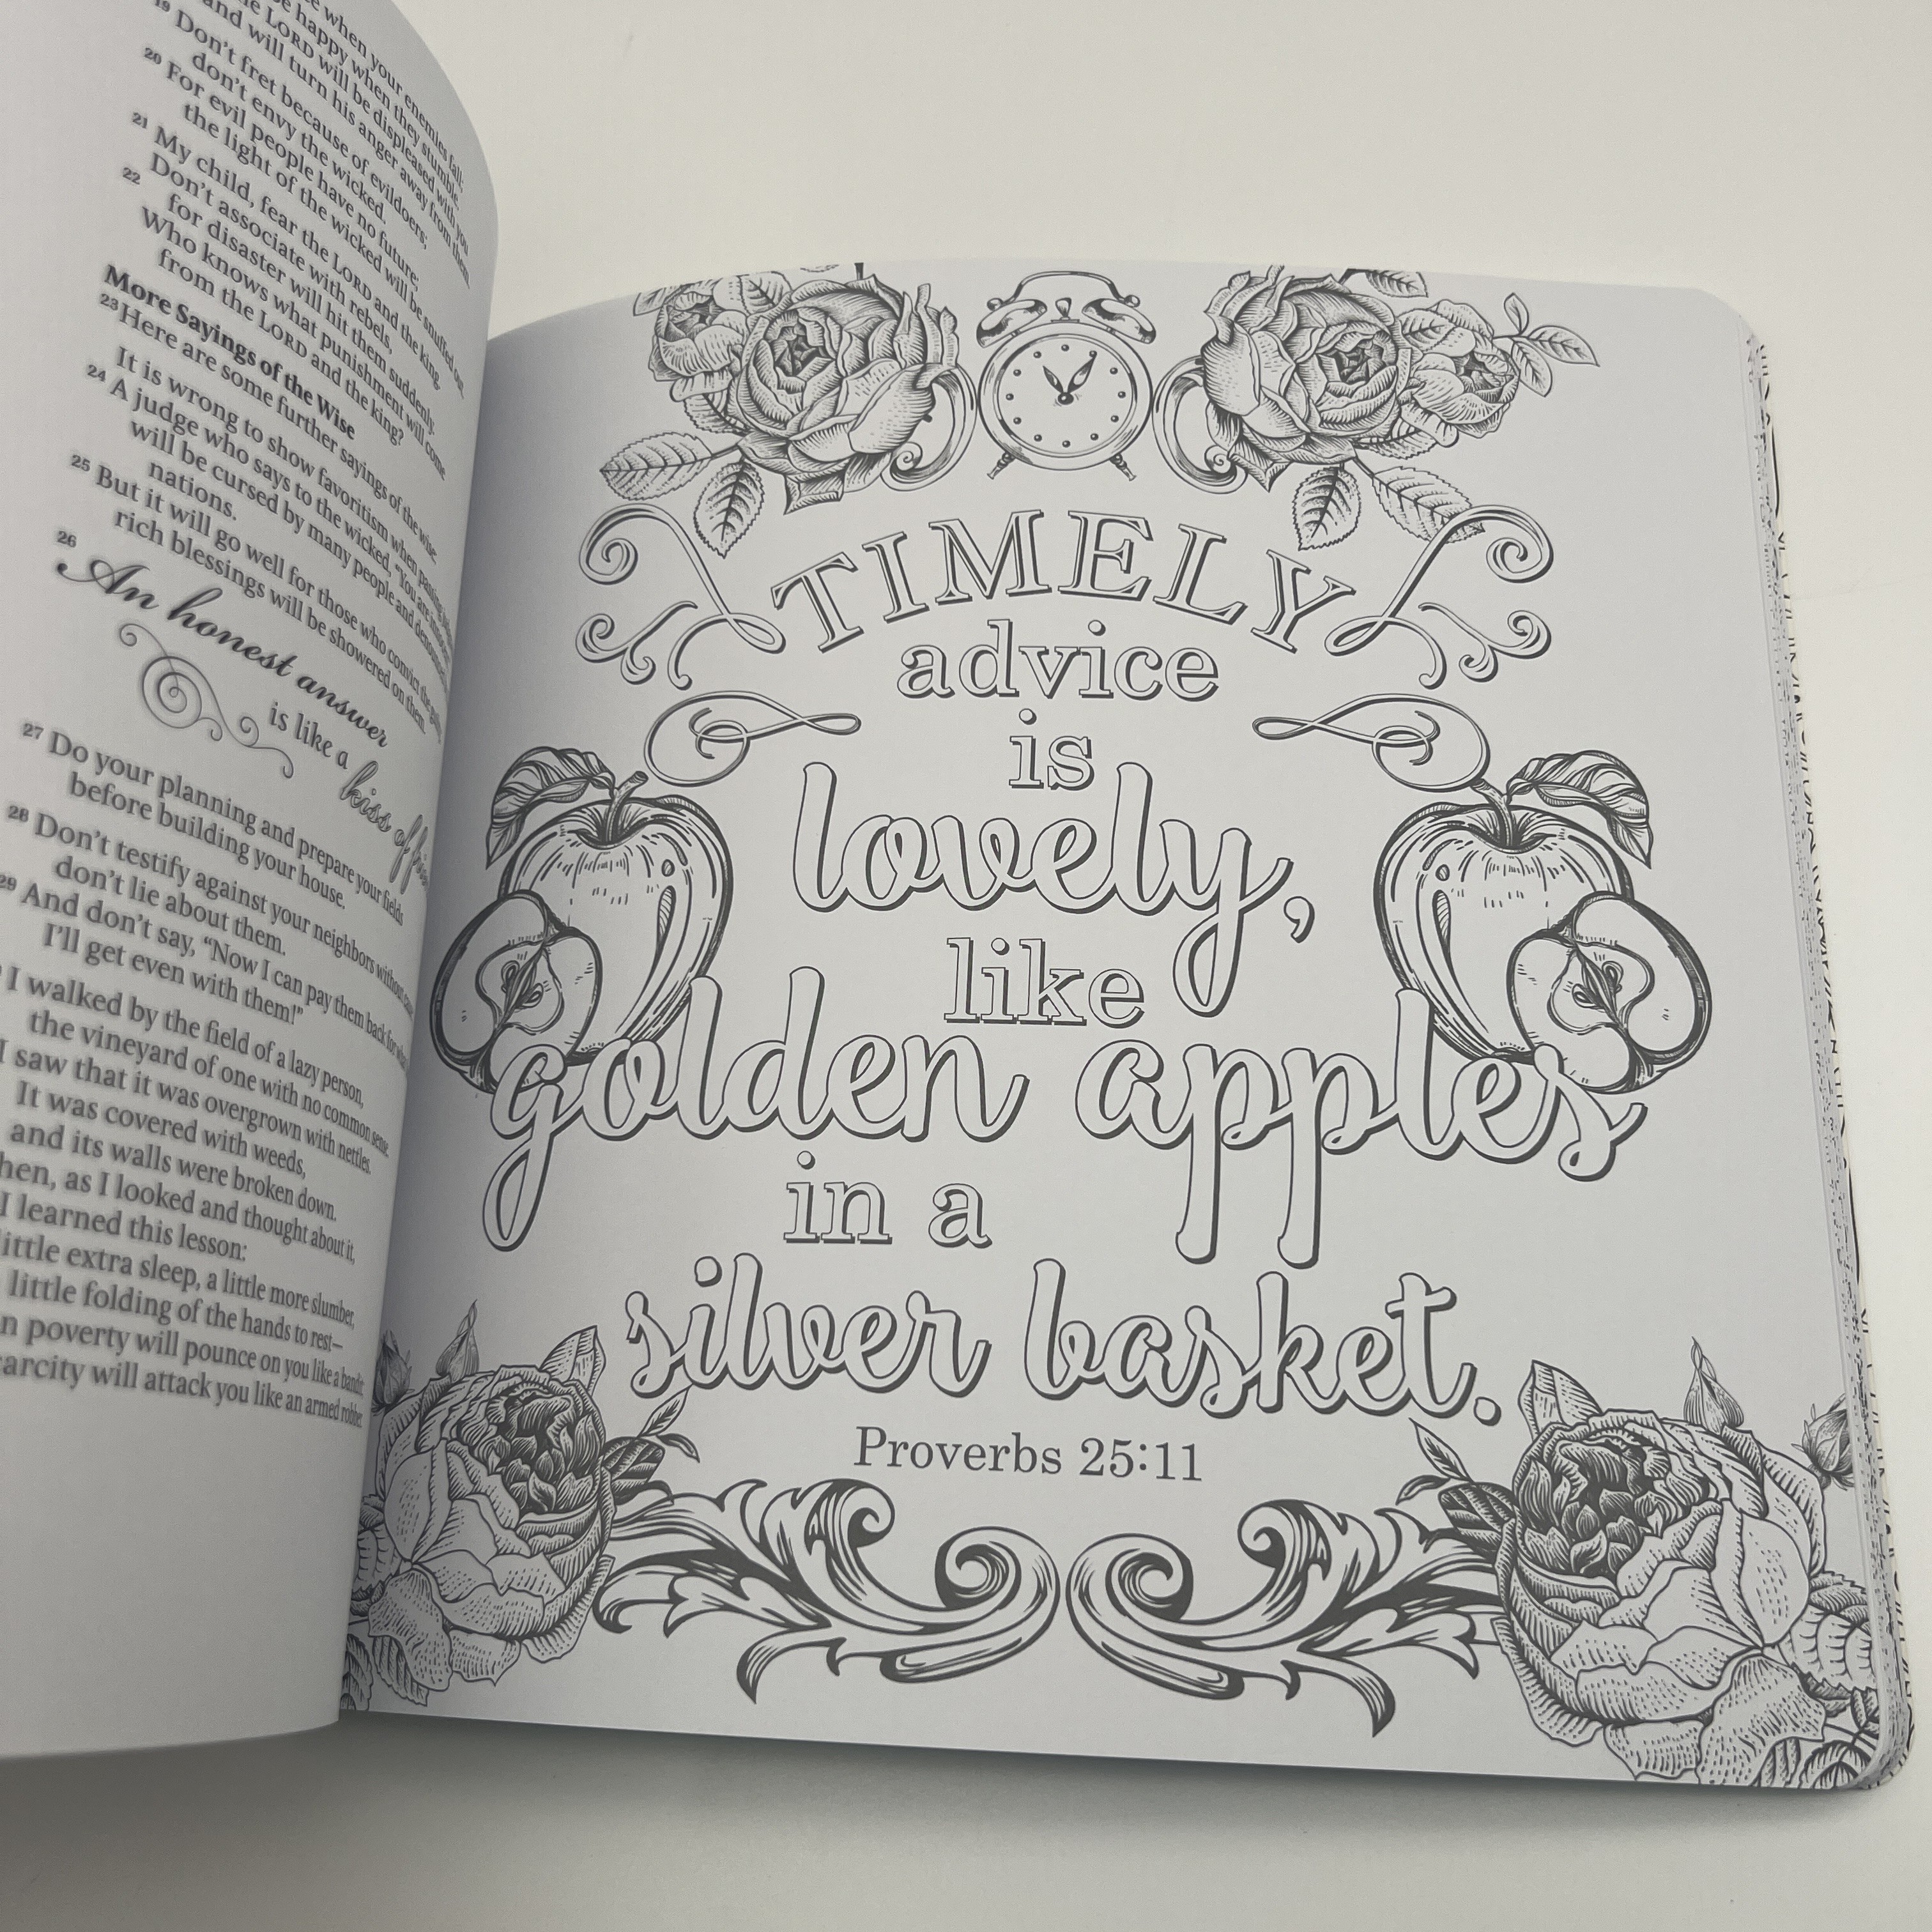 when your enemies fall;
be happy when they stumble.
the LORD will be displeased with you
and will turn his anger away from them.
19 Don't fret because of evildoers;
don't envy the wicked.
20 For evil people have no future;
the light of the wicked will be snuffed out.
21 My child, fear the LORD and the king.
Don't associate with rebels,
22 for disaster will hit them suddenly.
Who knows what punishment will come
from the LORD and the king?
More Sayings of the Wise
23 Here are some further sayings of the wise:
It is wrong to show favoritism when passing
24 A judge who says to the wicked, "You are innocent,"
will be cursed by many people and denounced
nations.
25 But it will go well for those who convict the guilty;
rich blessings will be showered on them.
26 An honest answer
is like a
kiss of
27 Do your planning and prepare your fields
before building your house.
28 Don't testify against your neighbors without cause;
don't lie about them.
29 And don't say, "Now I can pay them back for
I'll get even with them!"
I walked by the field of a lazy person,
the vineyard of one with no common sense.
I saw that it was overgrown with nettles.
It was covered with weeds,
and its walls were broken down.
as I looked and thought about it,
I learned this lesson:
little extra sleep, a little more slumber,
little folding of the hands to rest—
poverty will pounce on you like a bandit;
will attack you like an armed robber.
TIMELY
advice
is
lovely,
like
golden apples
in a
silver basket.
Proverbs 25:11